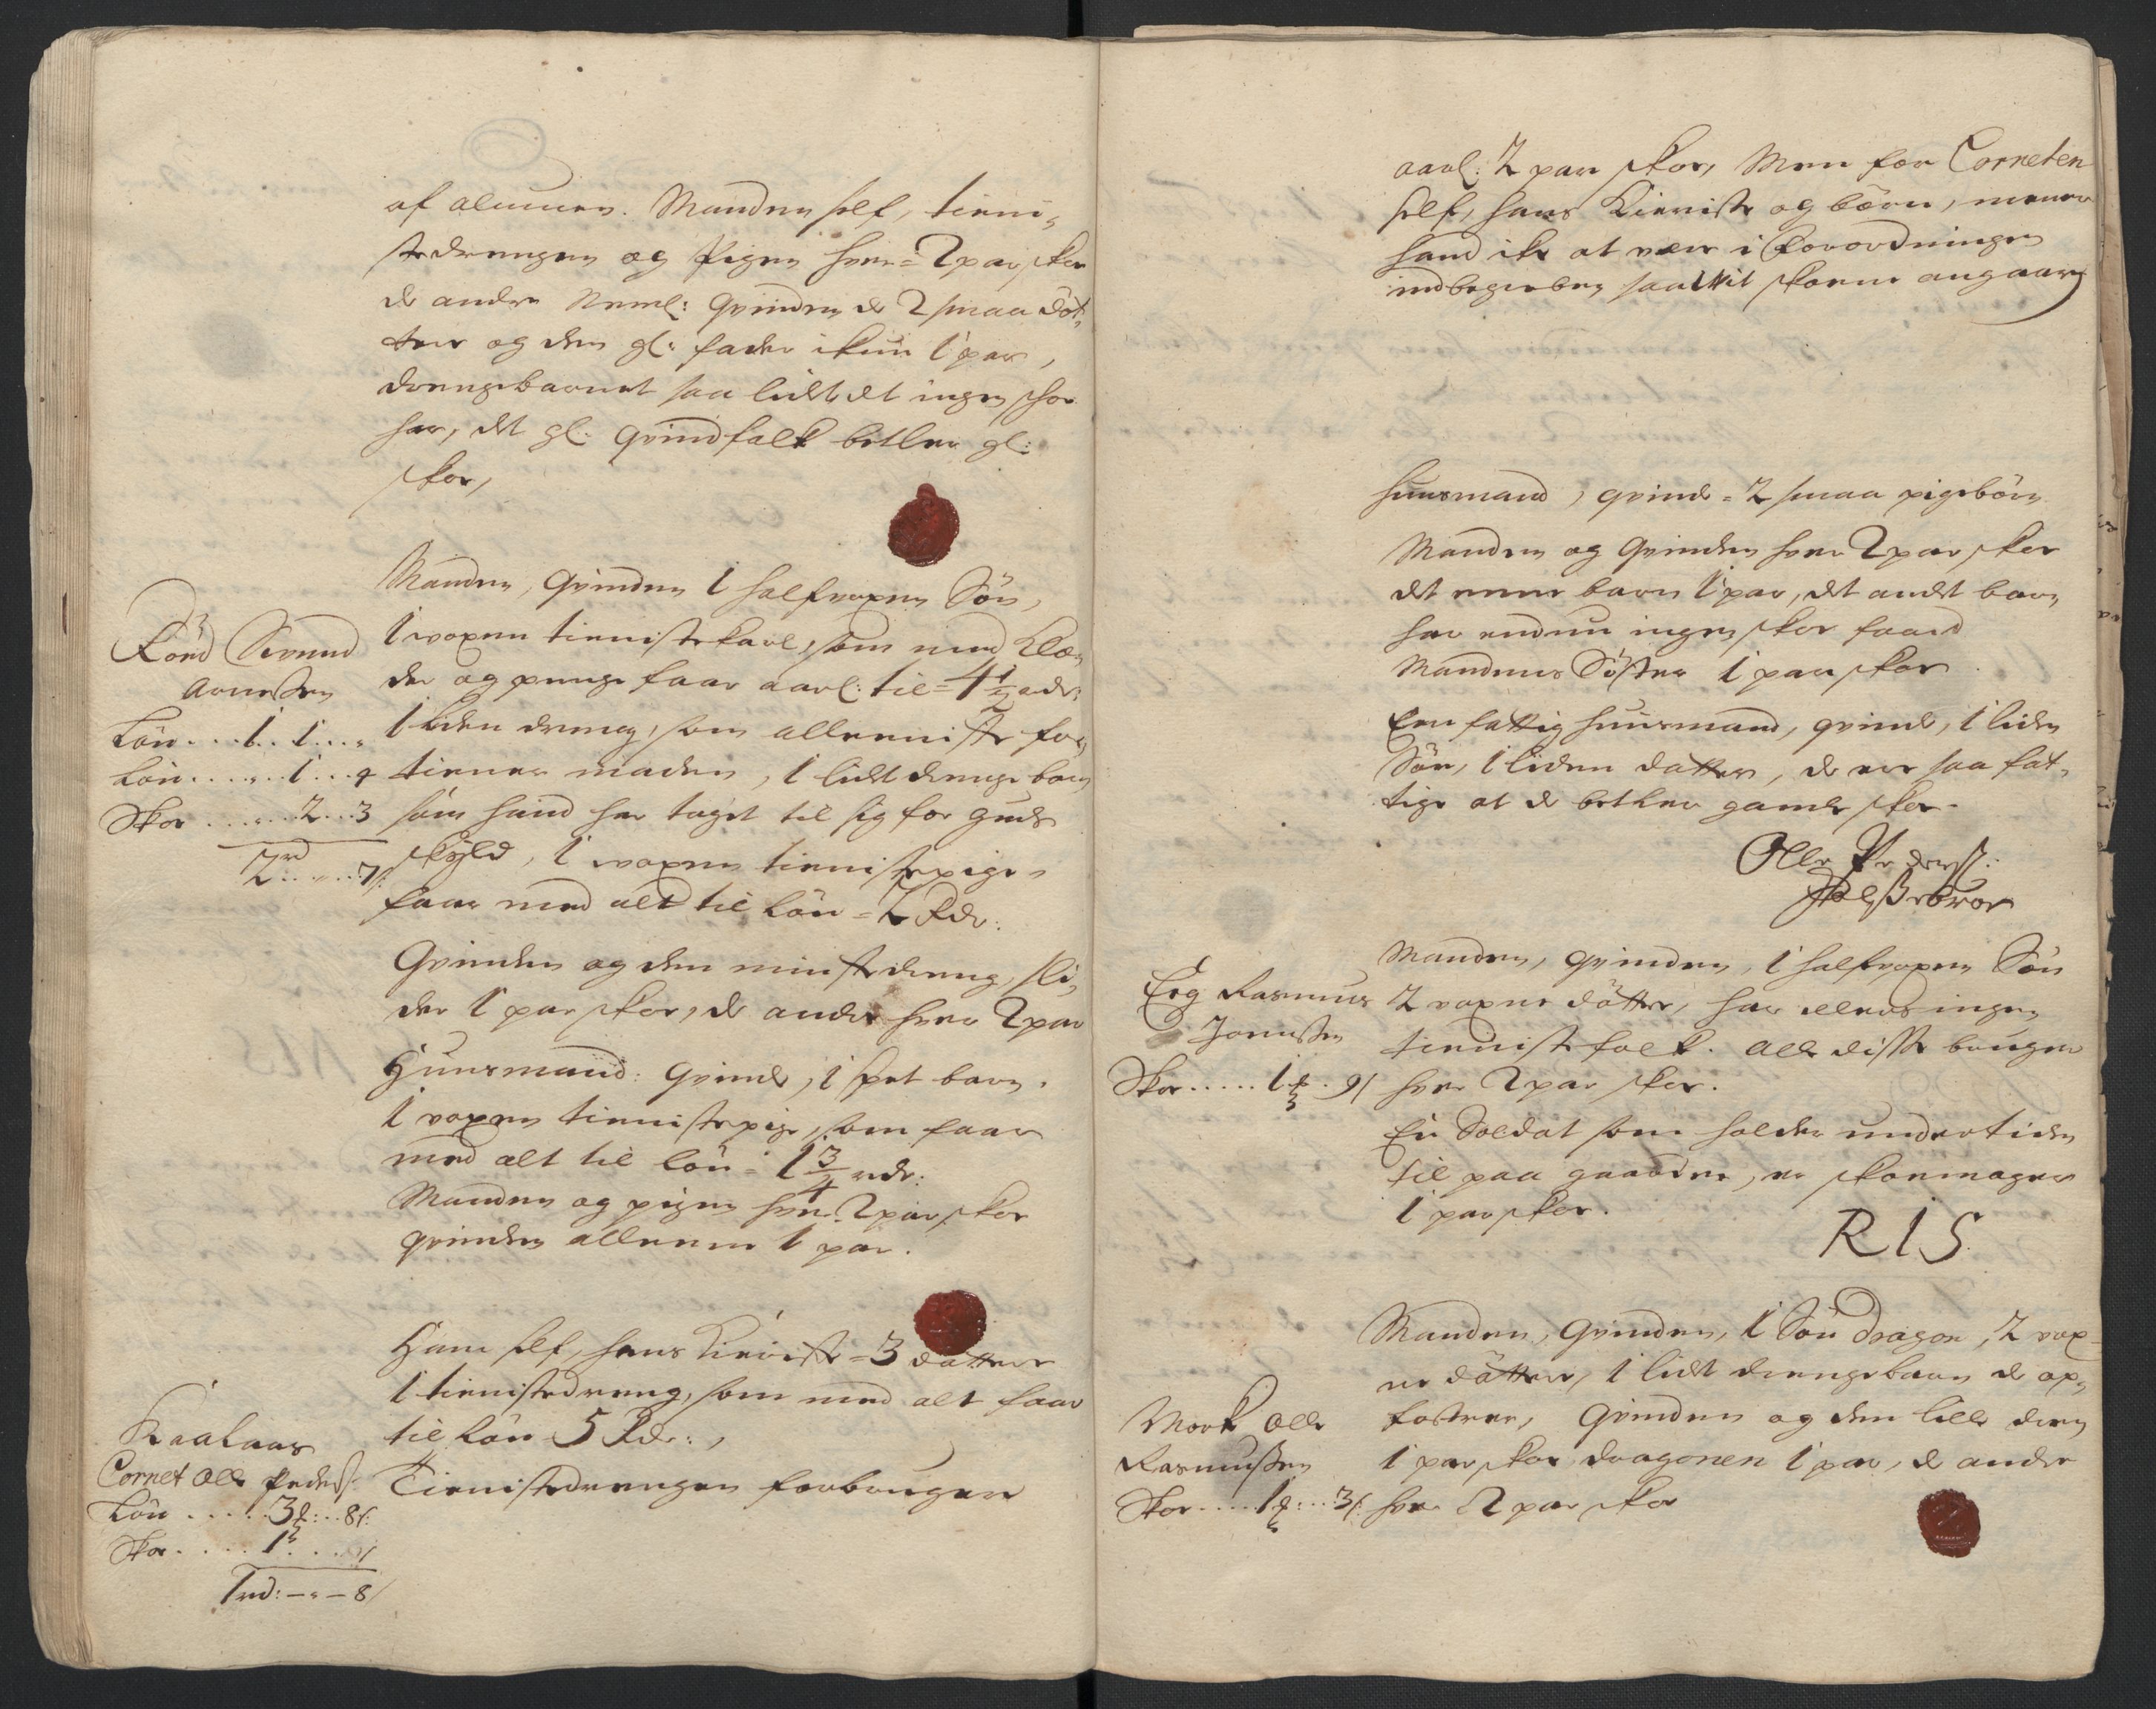 af aluuen. Manden self, tieni-
stedrengen og Pigen hver = 2 par skoe
de andre Neml: Qvinden de 2 smaa döt-
trer og den gl: fader ikun 1 par,
drengebarnet saa lidt det ingen skoe
har, det gl: qvindfolk betler gl:
skoe,
Rörd Sivund
Arnessen
Lön . . . 1. 1 . . . „
Lön . . . „ . 1 . . 4
Skoe . . . „ . 2 . . 3
2 rd . . „ . . 7 s:
Manden, Qvinden 1 halfvoxen Sön,
1 voxen tienistekarl, som med Klæ-
der og penge faar aarl: til = 4½ rdr:
1 liden dreng, som alleeniste for-
tiener maden, 1 lidt drenge barn
som hand har taget til sig for Guds
skyld, 1 voxen tienistepige,
faar med alt til Lön = 2 Rdr:
Qvinden og den minste dreng, sli-
der 1 par skoe, de andre hver 2 par
Huusmand: Qvinde, 1 spet barn,
1 voxen tienistepige, som faar
med alt til lön = 1¾ rdr:
Manden og pigen hver 2 par skoe
qvinden alleene 1 par.
Kaalaas
Cornet Olle Peders:
Lön . . . . . 3 . . 8 s:
Skoe . . . . 1
1 rd: — „ — 8 s
Ham self, hans Kieriste = 3 döttrer
1 tienistedreng, som med alt faar
til Lön 5 Rdr:,
Tienistedrengen forbruger
aarl: 2 par skoe, Men for Corneten
self, hans Kieriste og börn, meener
hand ike at være i Forordningen
indbegreben saa vit skoene angaar
Huusmand, qvinde = 2 smaa pigebörn
Manden og Qvinden hver 2 par skoe
det eene barn 1 par, det andet barn
har endnu ingen skoe faaed
Mandens Söster 1 par skoe
Een fattig huusmand, qvinde, 1 liden
Sön, 1 liden datter, de ere saa fat-
tige at de betler gamle skoe.
Olle Pederss:
Eeg Rasmus
Jonessen
Skoe . . . . . 1 . 9 s
Manden, qvinden, 1 halfvoxen Sön
2 voxne dötter, har ellers ingen
tienistefolk. Alle disse bruger
hver 2 par skoe.
En Soldat som holder undertiden
til paa gaarden, er skoemager
1 par skoe.
R I S
Mork Olle
Rasmussen
Skoe . . . . 1 . . . 3 s:
Manden, Qvinden, 1 Sön dragon, 2 vox-
ne döttrer, 1 lidt drengebarn de op-
fostrer, Qvinden og den lille dreng
1 par skoe dragonen 1 par, de andre
hver 2 par skoe